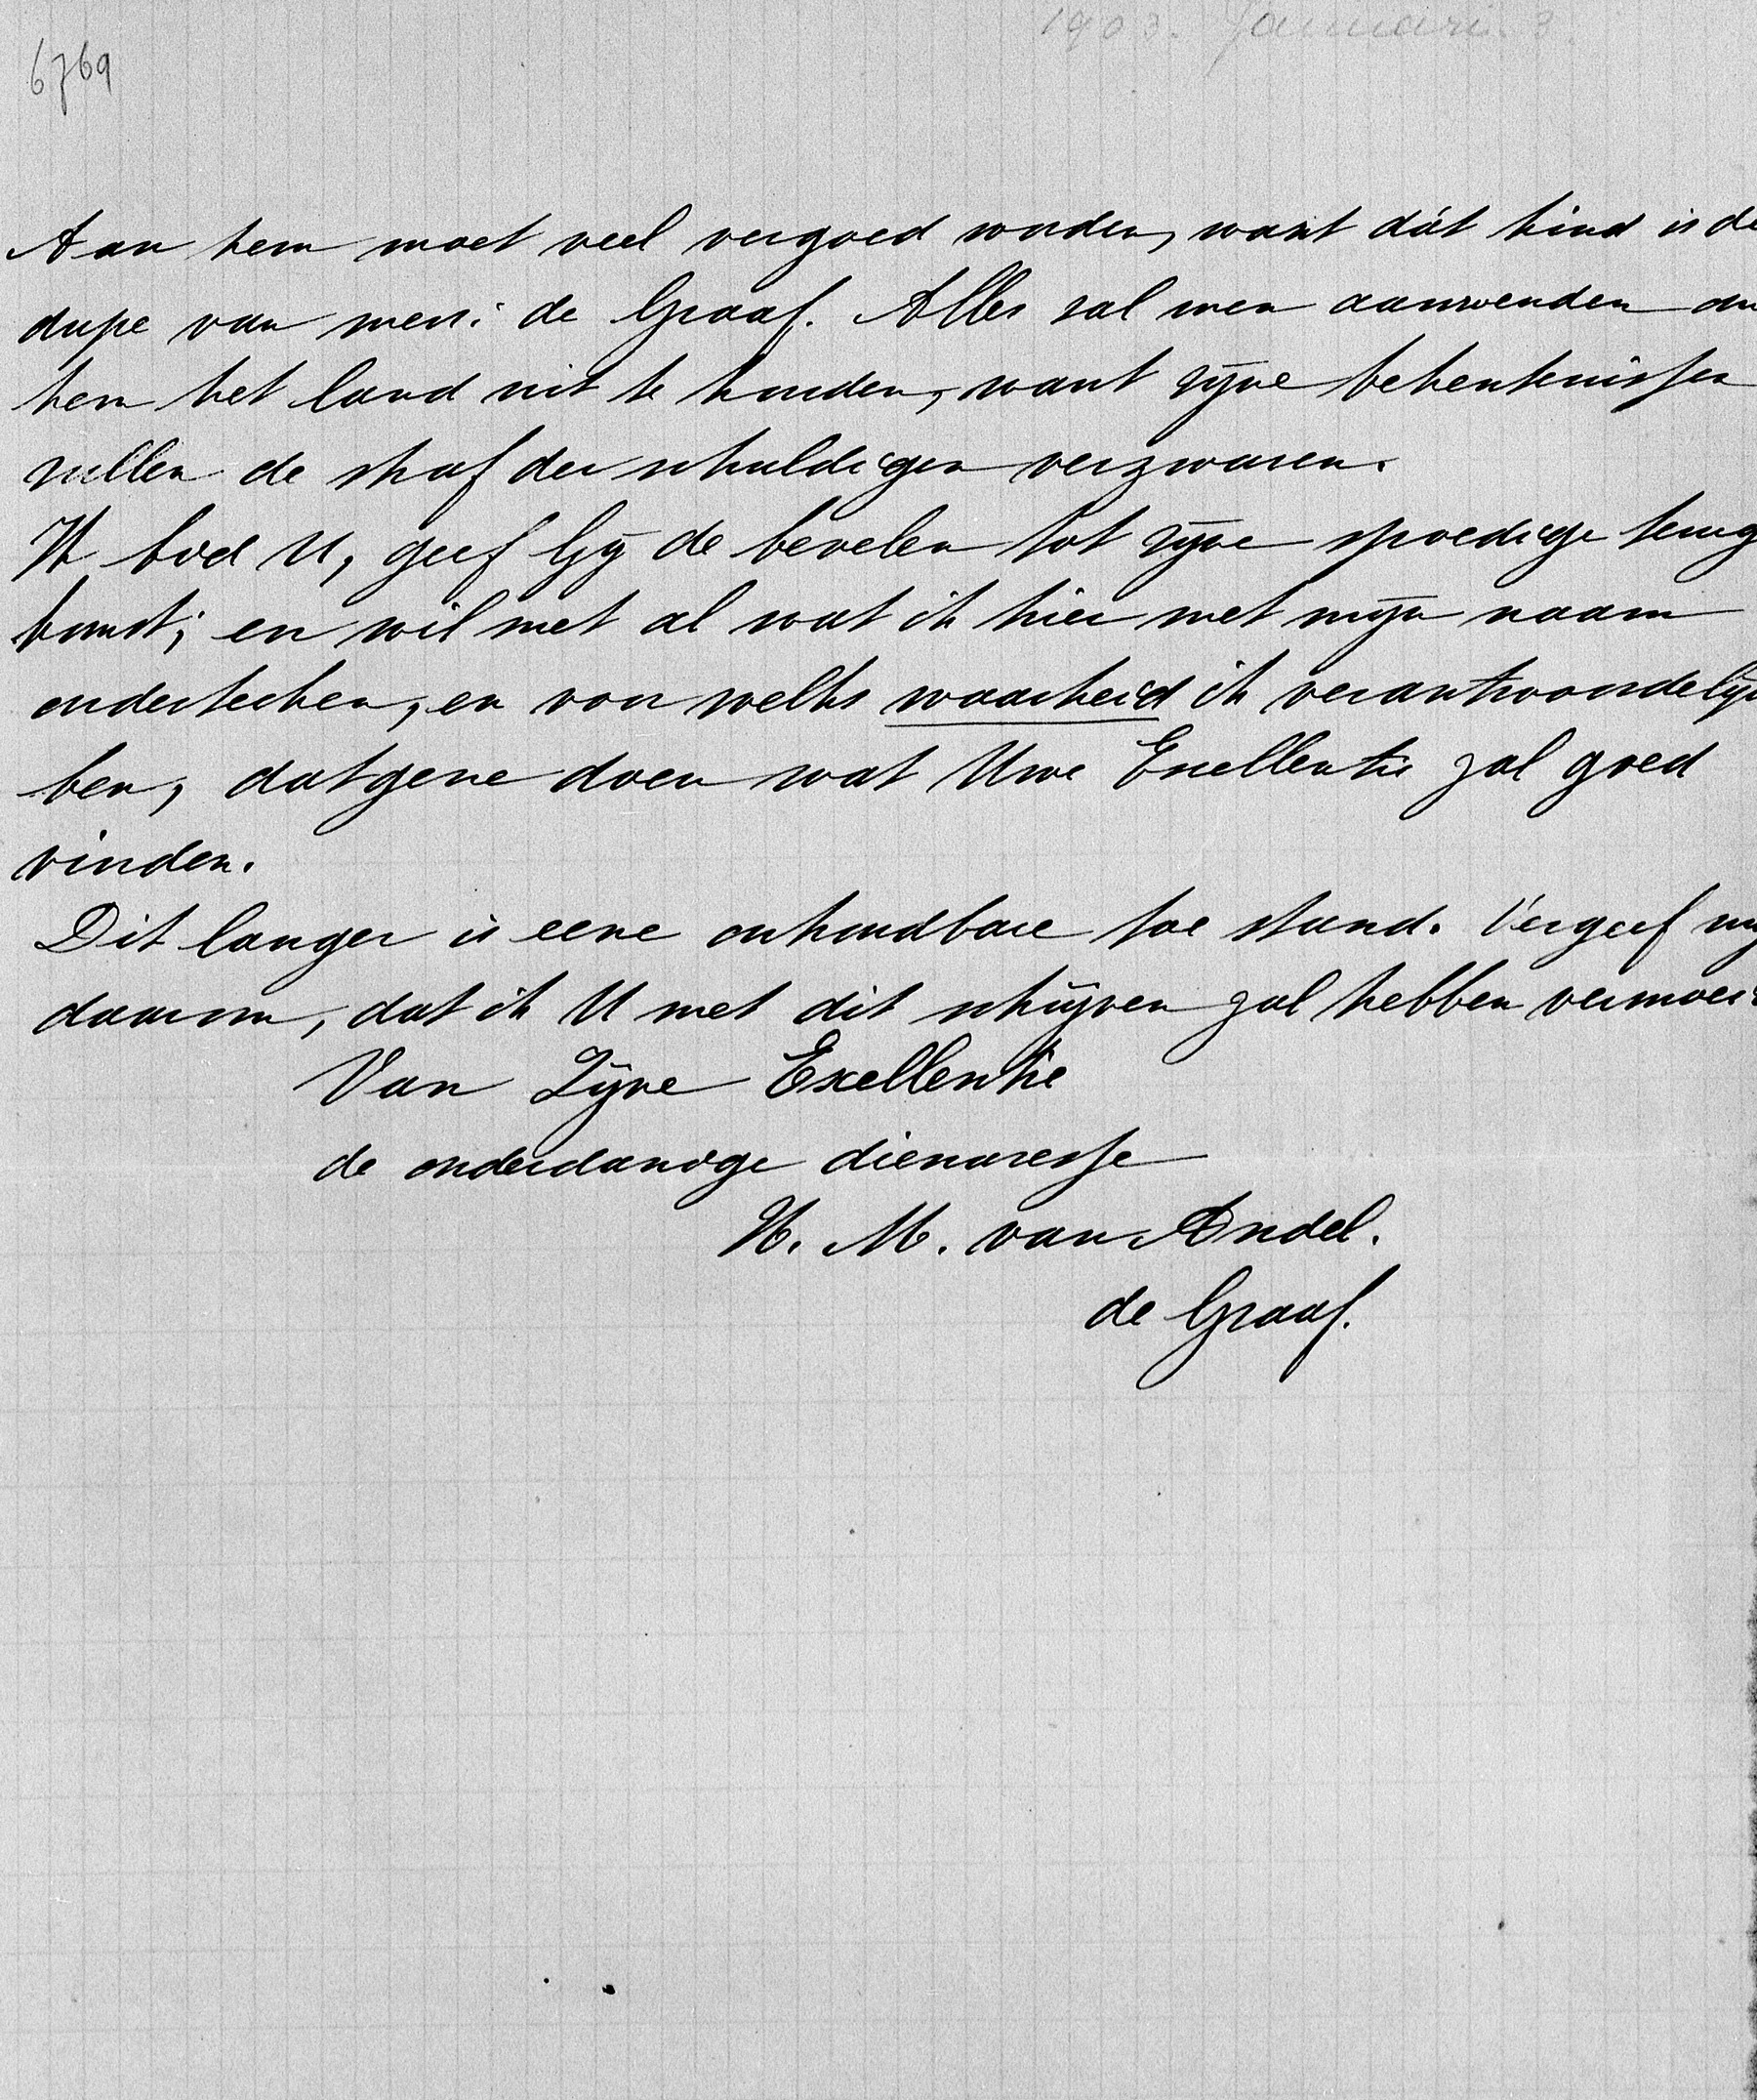 1903. Januari. 3.
6769
Aan hem moet veel vergoed worden, want dát kind is de
dupe van mevr. de Graaf. Alles zal men aanwenden om
hem het land uit te houden, want zijne bekentenissen
zullen de straf der schuldigen verzwaren.
Ik bid U, geef Gij de bevelen tot zijne spoedige terug
komst; en wil met al wat ik hier met mijn naam
onderteeken, en voor welks waarheid ik verantwoordelijk
ben, datgene doen wat Uwe Excellentie zal goed
vinden.
Dit langer is eene onhoudbare toe stand. Vergeef mij
daarom, dat ik U met dit schrijven zal hebben vermoeid
Van Zijne Excellentie
de onderdanige dienaresse
H. M. van Andel.
de Graaf.